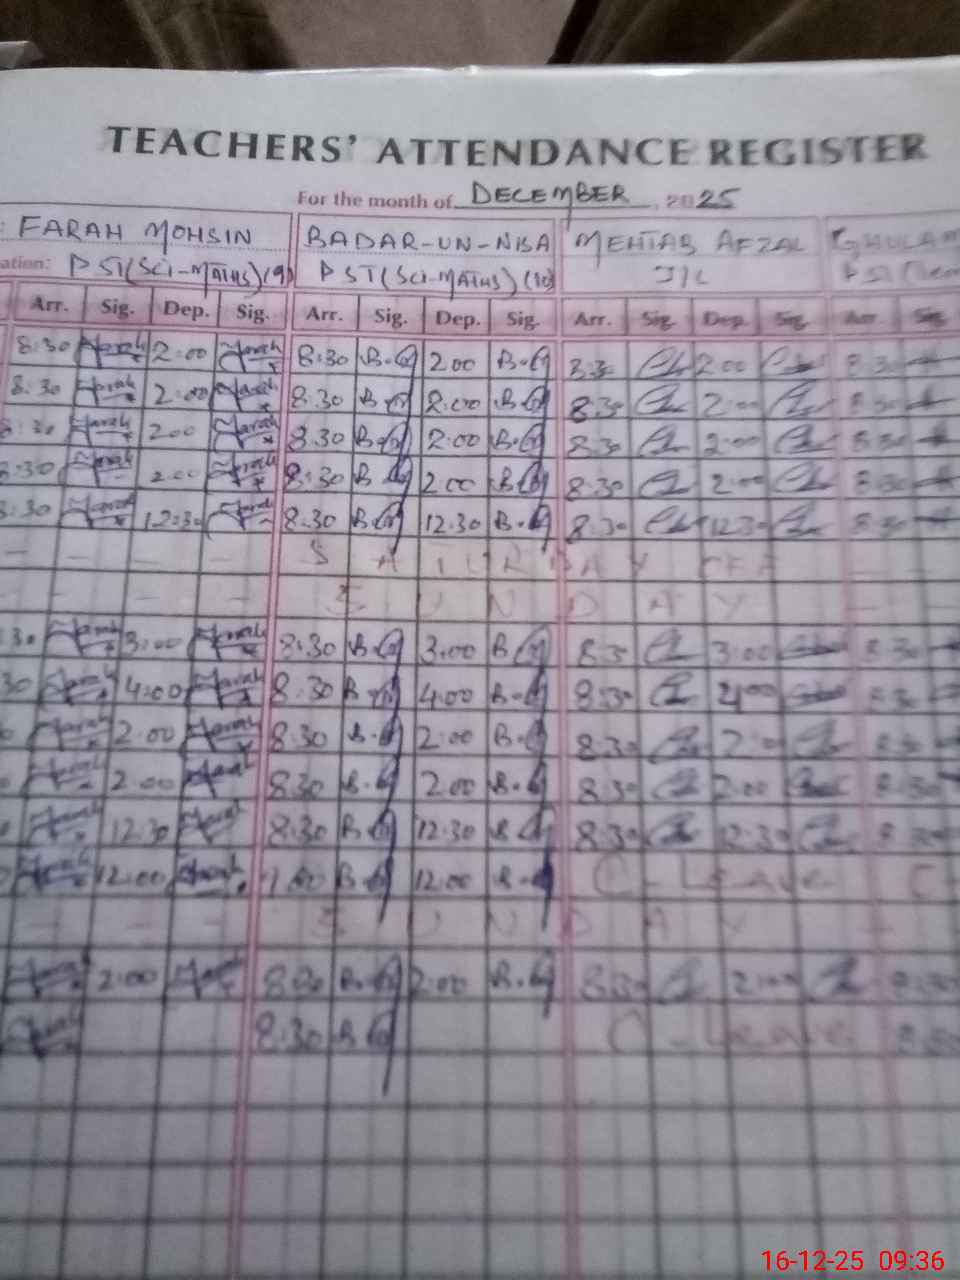 TEACHERS' ATTENDANCE REGISTER
For the month of DECEMBER, 2025
: FARAH MOHSIN BADAR-UN-NISA MEHTAB AFZAL GHULAM
ation: PST(SCI-MATHS)(9) PST(SCI-MATHS)(10) J/C
Arr. Sig. Dep. Sig. Arr. Sig. Dep. Sig. Arr. Sig. Dep. Sig. Arr. Sig.
8:30 Farah 2:00 Farah 8:30 B.G 2:00 B.G 8:30 2:00 8:30
8:30 Farah 2:00 Farah 8:30 B.G 2:00 B.G 8:30 2:00 8:30
8:30 Farah 2:00 Farah 8:30 B.G 2:00 B.G 8:30 2:00 8:30
8:30 Farah 2:00 Farah 8:30 B.G 2:00 B.G 8:30 2:00 8:30
8:30 Farah 12:30 Farah 8:30 B.G 12:30 B.G 8:30 12:30 8:30
— — — — SATURDAY OFF — —
— — — — SUNDAY — —
30 Farah 3:00 Farah 8:30 B.G 3:00 B.G 8:30 3:00 8:30
30 Farah 4:00 Farah 8:30 B.G 4:00 B.G 8:30 4:00 8:30
0 Farah 2:00 Farah 8:30 B.G 2:00 B.G 8:30 2:00 8:30
0 Farah 2:00 Farah 8:30 B.G 2:00 B.G 8:30 2:00 8:30
0 Farah 12:30 Farah 8:30 B.G 12:30 B.G 8:30 12:30 8:30
Farah 12:00 Farah B.G 12:00 B.G C-Leave C-
— — — SUNDAY —
Farah 2:00 Farah 8:30 B.G 2:00 B.G 8:30 2:00 8:30
Farah 8:30 B.G C-Leave 8:30
16-12-25 09:36